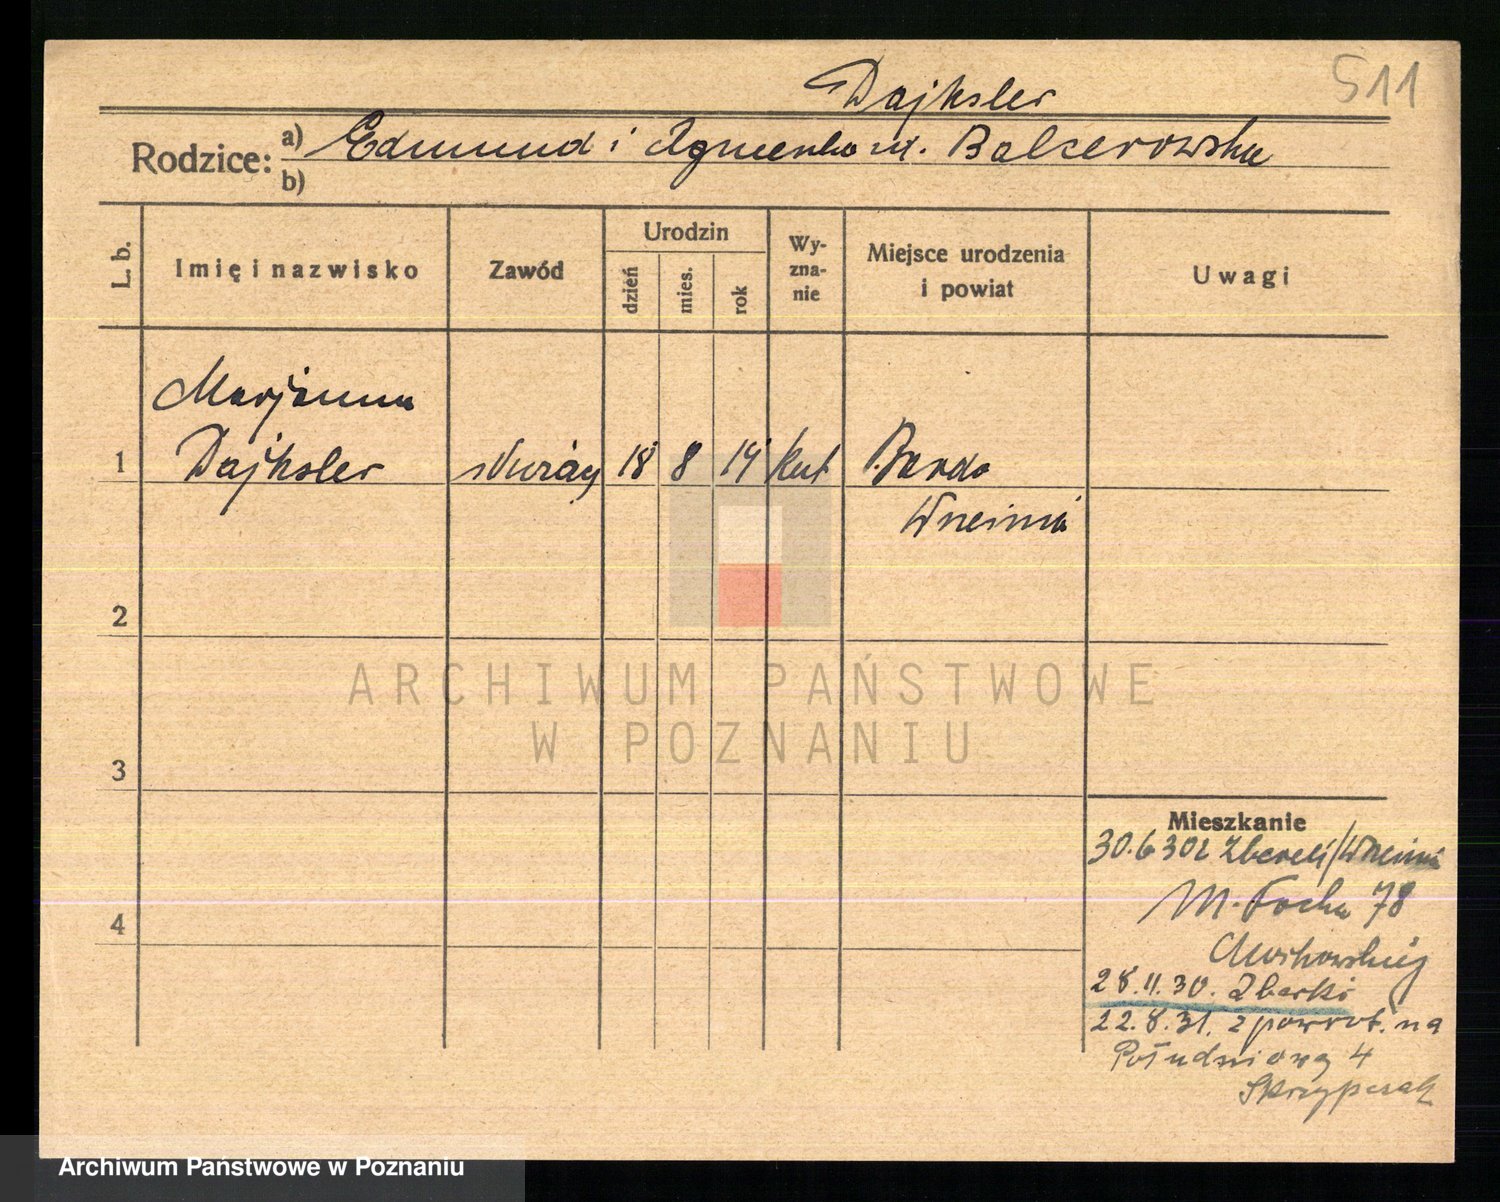 Dajksler 511
Rodzice: a) Edmund i Agnieszka ur. Balcerowska
b)
L. b. Imię i nazwisko Zawód Urodzin dzień mies. rok Wyznanie Miejsce urodzenia i powiat Uwagi
Marjanna
1 Dajksler służący 18 8 14 kat Bardo
Września
2
ARCHIWUM PAŃSTWOWE
W POZNANIU
3
Mieszkanie
30.6 30 z /Września
4 M. Focha 78
28.11.30. Zberki
22.8.31. z powrot. na
Południową 4
Skrzypczak
Archiwum Państwowe w Poznaniu